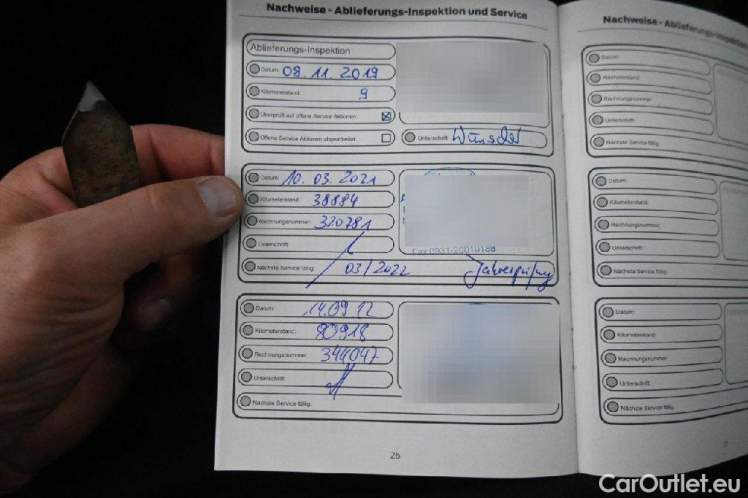 Nachweise - Ablieferungs-Inspektion und Service
Ablieferungs-Inspektion
Datum 08.11.2019
Kilometerstand 9
Überprüft auf offene Service Aktionen
Offene Service Aktionen abgearbeitet
Unterschrift
Datum 10.03.2021
Kilometerstand 38884
Rechnungsnummer 320781
Unterschrift
Nächste Service fällig 03/2022
Jahresprüfung
Datum 14.09
Kilometerstand 80918
Rechnungsnummer 344047
Unterschrift
Nächste Service fällig
26
Nachweise - Ablieferungs-Inspektion
Datum
Kilometerstand
Rechnungsnummer
Unterschrift
Nächste Service fällig
Datum
Kilometerstand
Rechnungsnummer
Unterschrift
Nächste Service fällig
Datum
Kilometerstand
Rechnungsnummer
Unterschrift
Nächste Service fällig
CarOutlet.eu